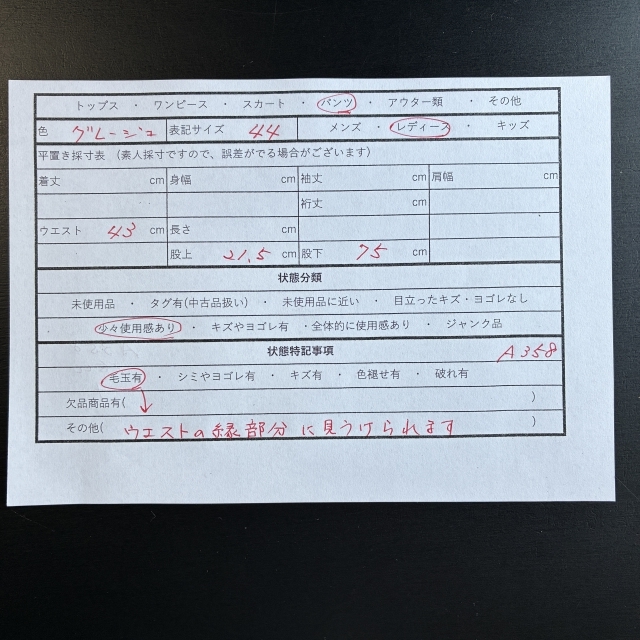 トップス ・ ワンピース ・ スカート ・ パンツ ・ アウター類 ・ その他
色 グレージュ 表記サイズ 44 メンズ ・ レディース ・ キッズ
平置き採寸表 (素人採寸ですので、誤差がでる場合がございます)
着丈 cm 身幅 cm 袖丈 cm 肩幅 cm
裄丈 cm
ウエスト 43 cm 長さ cm
股上 21.5 cm 股下 75 cm
状態分類
未使用品 ・ タグ有(中古品扱い) ・ 未使用品に近い ・ 目立ったキズ・ヨゴレなし
少々使用感あり ・ キズやヨゴレ有 ・全体的に使用感あり ・ ジャンク品
状態特記事項 A358
毛玉有 ・ シミやヨゴレ有 ・ キズ有 ・ 色褪せ有 ・ 破れ有
欠品商品有( )
その他( ウエストの縁部分に見うけられます )